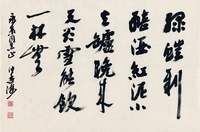 綠螘新
醅酒紅泥小
火罏晚來
天欲雪能飲
一杯無
同志正